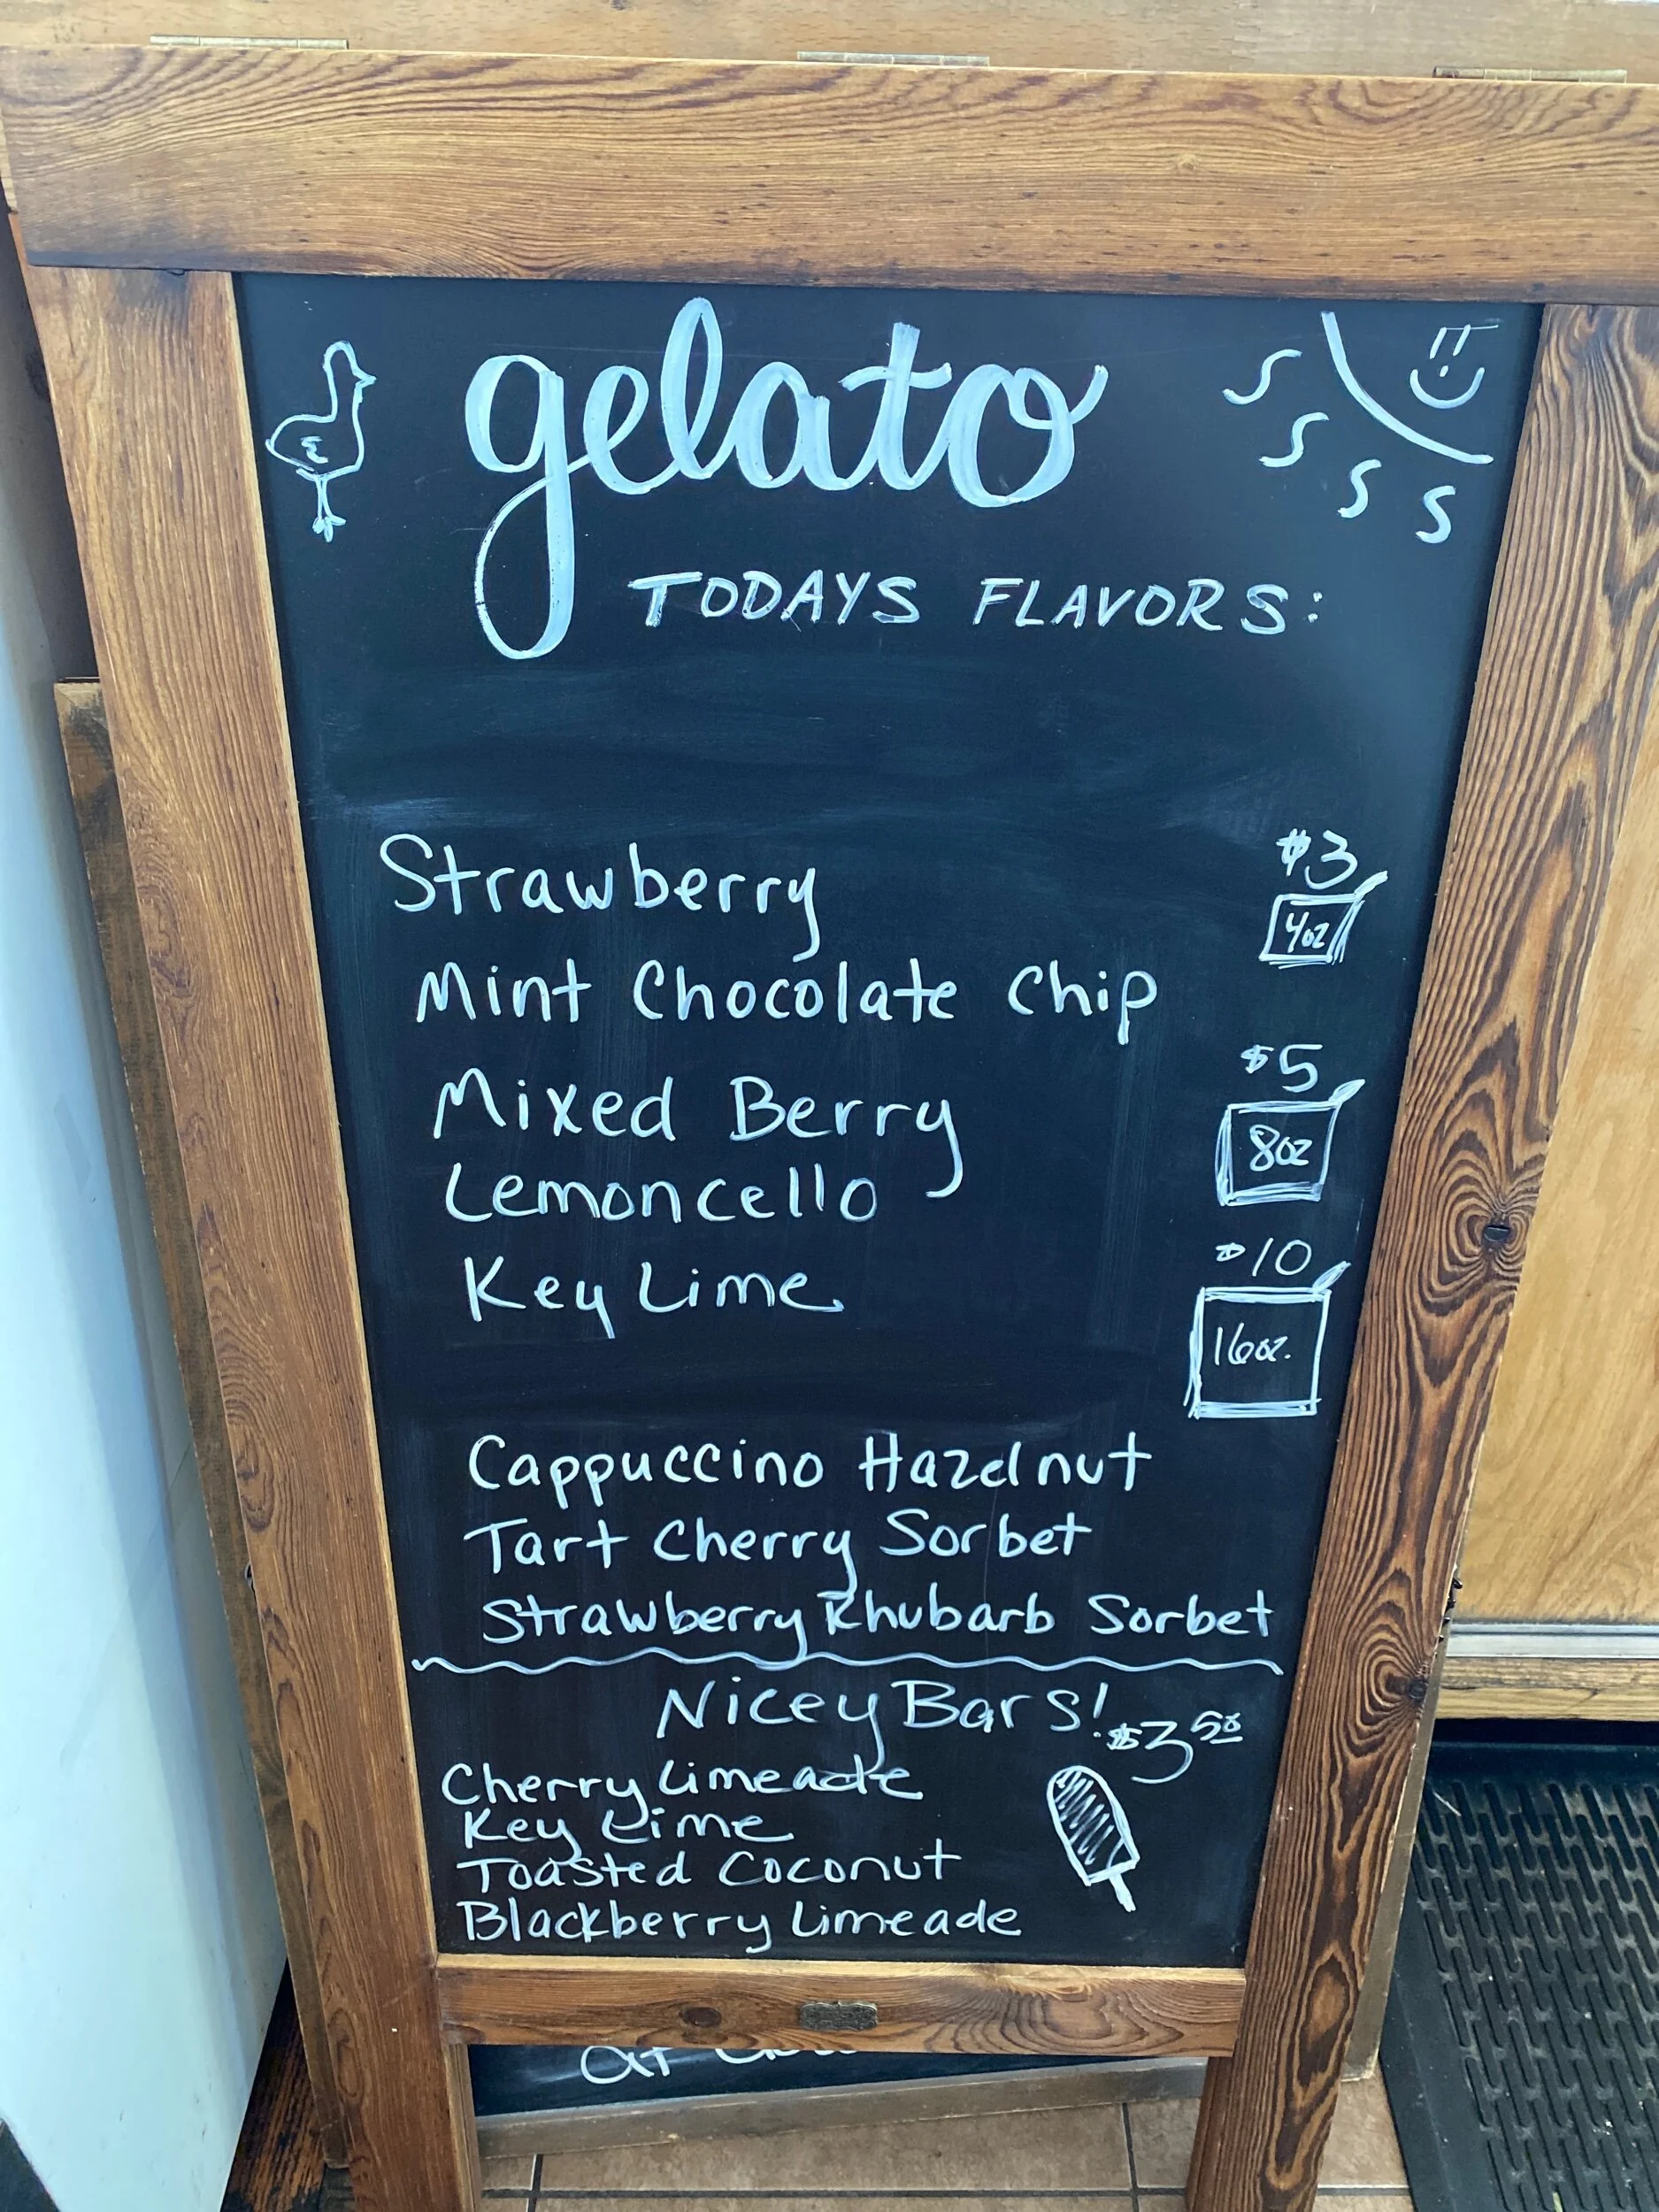 gelato
TODAYS FLAVORS:
Strawberry
$3
4oz
Mint Chocolate Chip
Mixed Berry
$5
8oz
Lemoncello
Key Lime
$10
16oz.
Cappuccino Hazelnut
Tart Cherry Sorbet
Strawberry Rhubarb Sorbet
Nicey Bars!
$3 50
Cherry Limeade
Key Lime
Toasted Coconut
Blackberry Limeade
at